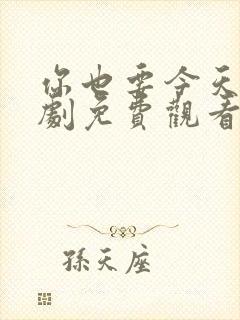 你也要今天
劇免費觀看
孫天座